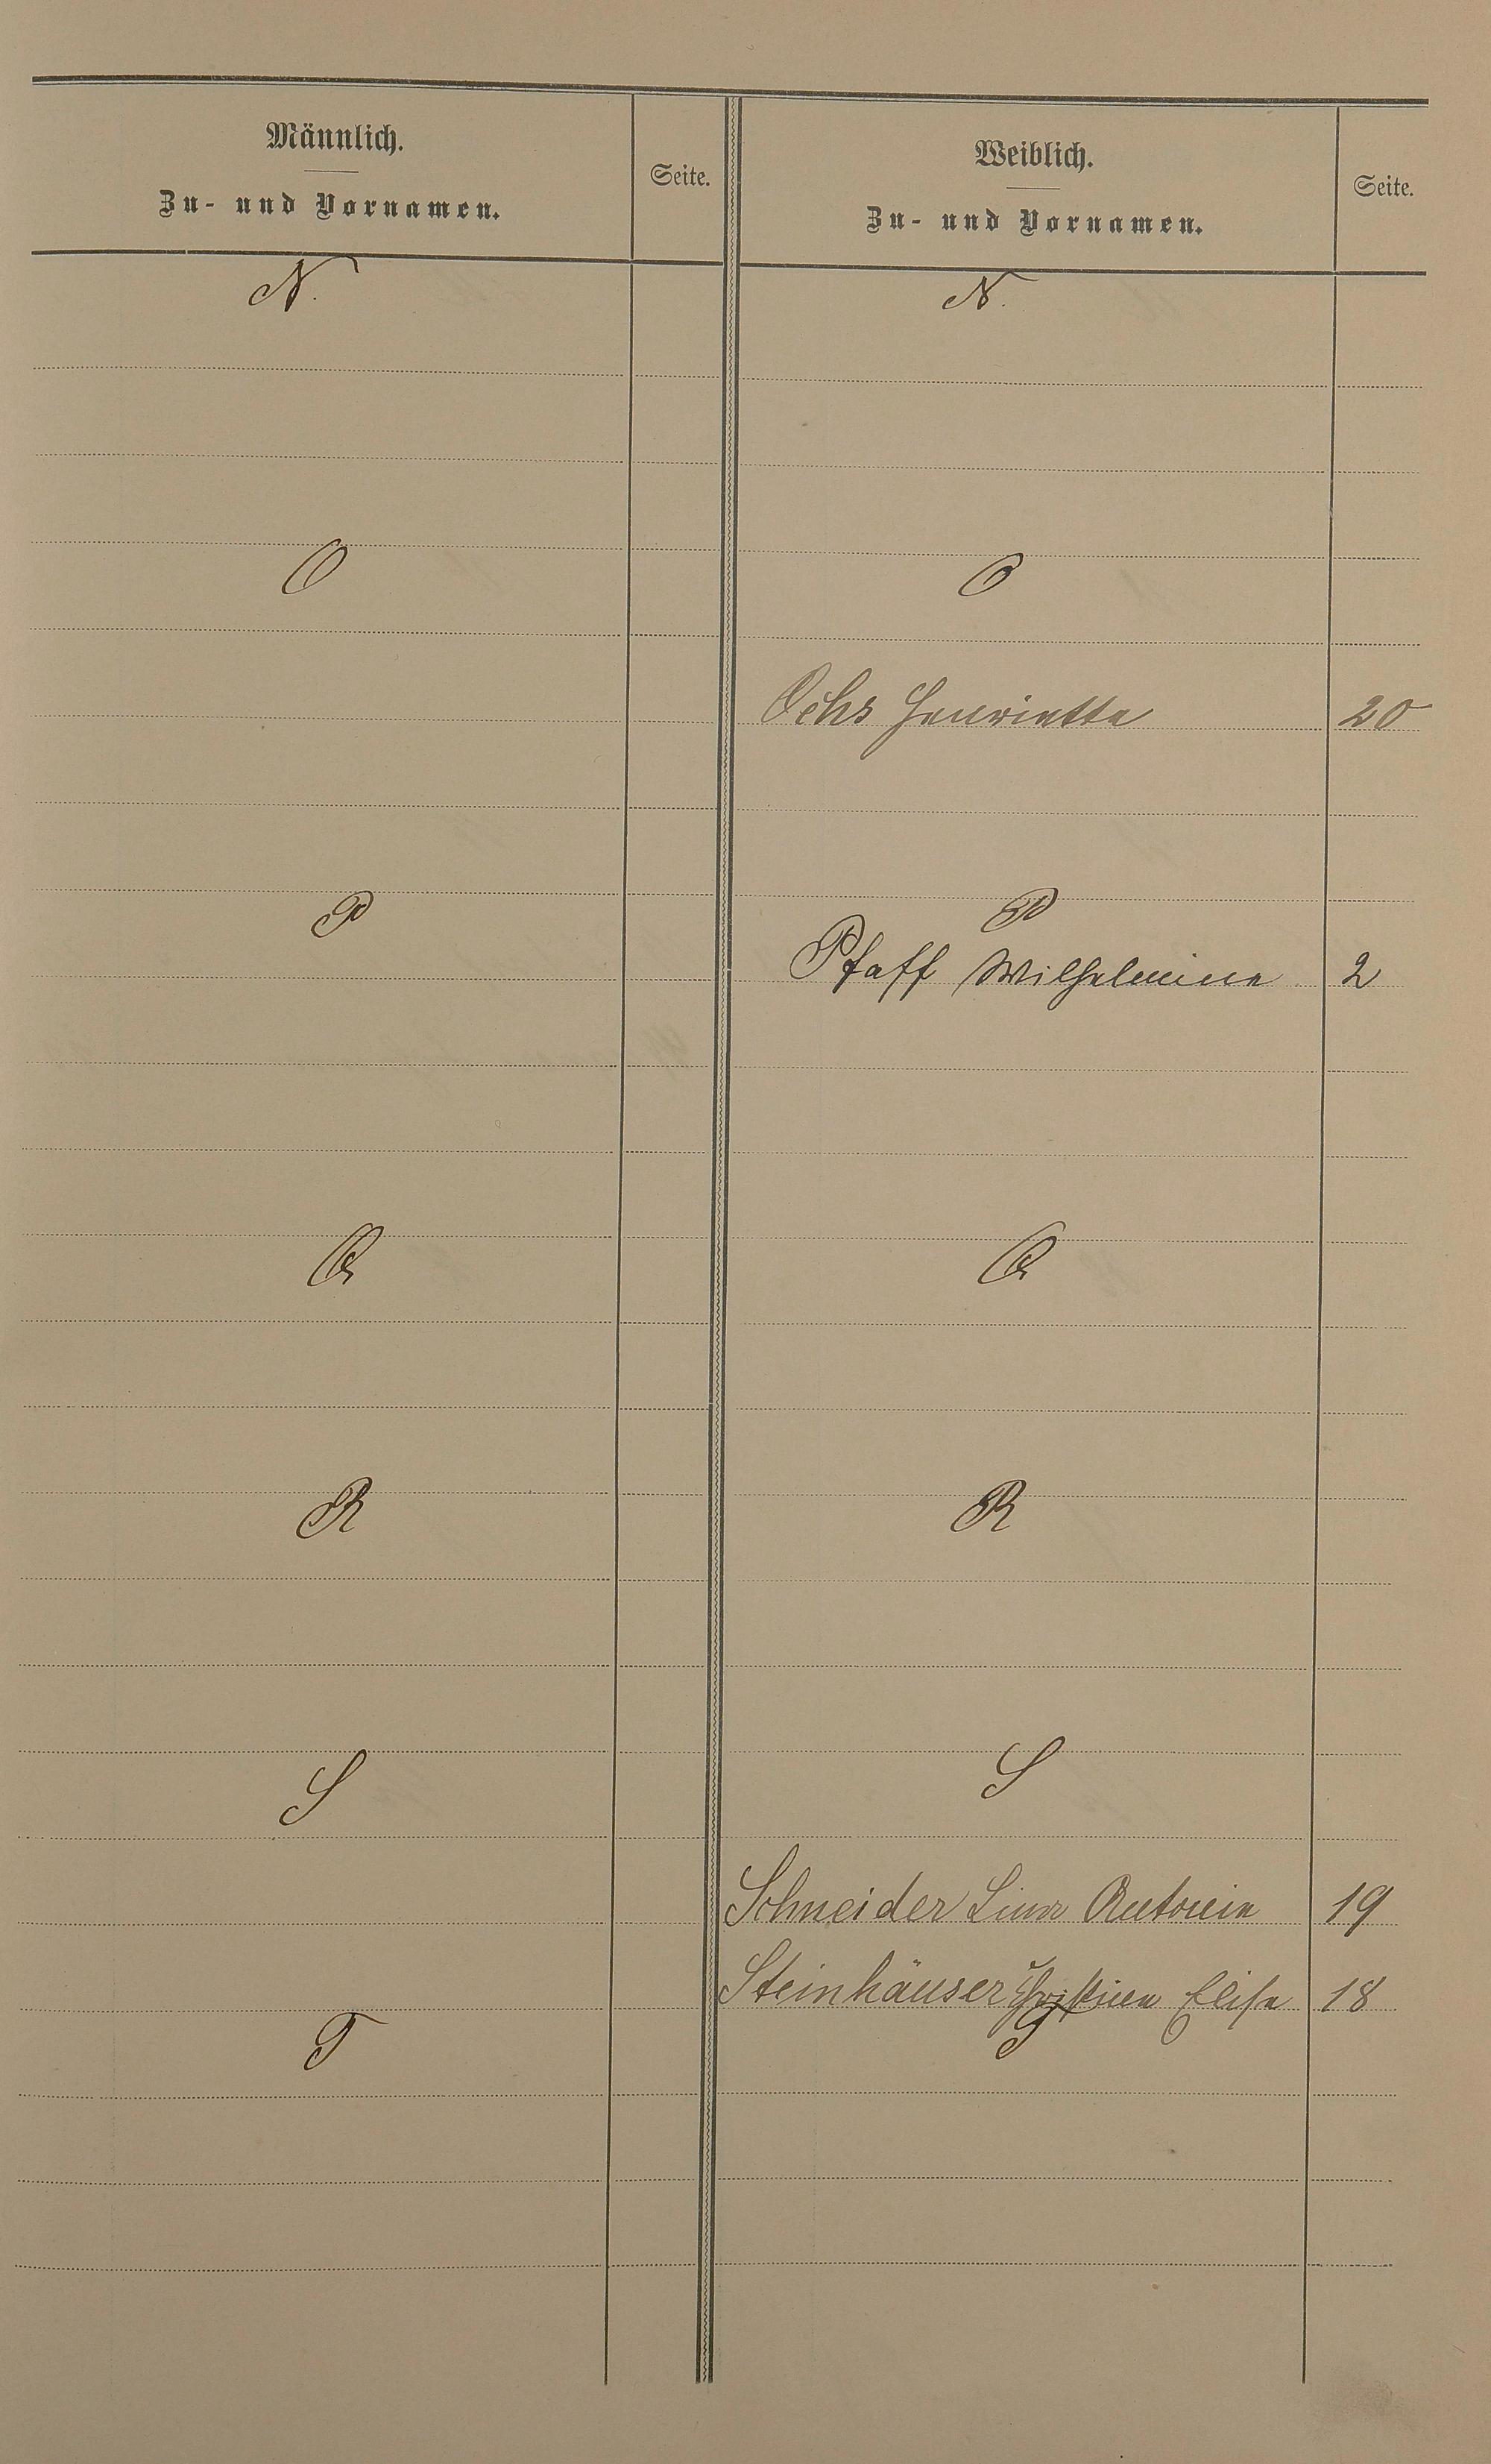 Männlich.
Zu- und Vornamen.
Seite.
Weiblich.
Zu- und Vornamen.
Seite.
N.
N.
O
O
Ochs Henriette 20
P
P
Pfaff Wilhelmine 2
Q
Q
R
R
S
S
Schneider Lina Antonie 19
Steinhäuser Elise 18
T
T